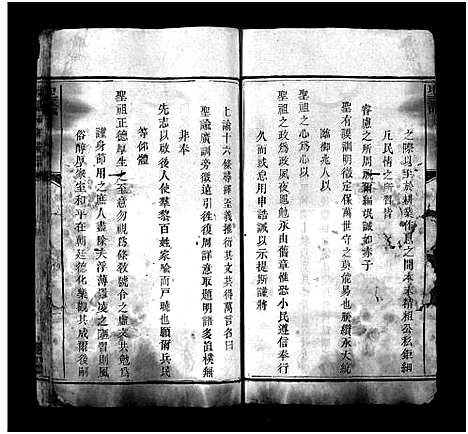 之際以至於耕桑作息之間本末精粗公私鉅細
凡民情之所習皆
睿慮之所周咸爾編氓誠如赤子
聖有謨訓明徵定保萬世守之莫能易也朕纘承大統
臨御兆人以
聖祖之心為心以
聖祖之政為政夙夜黽勉率由舊章惟恐小民遵信奉行
久而或怠用申誥誡以示提撕謹將
上諭十六條尋繹其義推衍其文共得萬言名曰
聖諭廣訓旁徵遠引往復周詳意取顯明語多直樸無
非奉
先志以啟後人使羣黎百姓家喻而戶曉也願爾兵民
等仰體
聖祖正德厚生之至意勿視為條教號令之虛文共勉為
謹身節用之庶人盡除夫浮薄囂凌之陋習則風
俗醇厚室家和平在朝廷德化樂觀其成爾後嗣